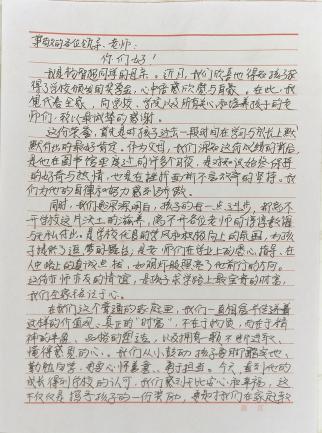 尊敬的各位领导、老师：
你们好！
我是 同学的母亲。近日，我们欣喜地得知孩子获
得了学校颁发的奖学金，心中倍感欣慰与自豪。在此，我
谨代表全家，向学校、学院以及所有关心和培养孩子的老
师们，致以最诚挚的感谢。
这份荣誉，首先是对孩子过去一段时间在学习与成长上默
默付出的最好肯定。作为父母，我们深知这份成绩的背后，
是他在图书馆里度过的许多日夜，是对知识始终保持
的好奇与热情，也是在挫折面前不言放弃的坚持。我
们为他的自律和努力感到骄傲。
同时，我们也深深明白，孩子的每一点进步，都离不
开学校这片沃土的滋养，离不开各位老师的谆谆教诲
与无私付出。是学校优良的学风和积极向上的氛围，为孩
子提供了追梦的舞台；是老师们在学业上的悉心指导、在
人生路上的真诚点拨，如明灯般照亮了他前行的方向。
这份亦师亦友的情谊，是孩子求学路上最宝贵的财富，
我们全家铭记于心。
在我们这个普通的家庭里，我们一直相信并传递着
这样的价值观：真正的“财富”，不在于物质，而在于精
神的丰盈、品格的塑造，以及拥有一颗不断进取、
懂得感恩的心。我们从小鼓励孩子要脚踏实地、
勤勉向学，更要心怀善意、勇于担当。今天，看到他的
成长得到学校的认可，我们感到无比安心和幸福，这
不仅仅是 孩子的一份奖励，更加 我们在家庭教